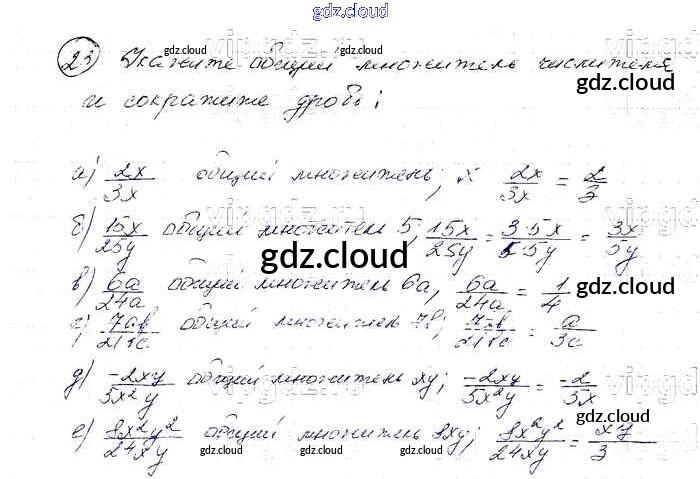 gdz.cloud
23 Укажите общий множитель числителя
и сократите дробь:
а) 2x/3x общий множитель; x 2x/3x = 2/3
б) 15x/25y общий множител 5; 15x/25y = 3·5x/5·5y = 3x/5y
gdz.cloud
в) 6a/24a общий множител 6a, 6a/24a = 1/4
г) 7ab/21bc общий множитель 7b; 7ab/21bc = a/3c
д) -2xy/5x²y общий множитель xy; -2xy/5x²y = -2/5x
е) 8x²y²/24xy общий множитель 8xy; 8x²y²/24xy = xy/3
gdz.cloud